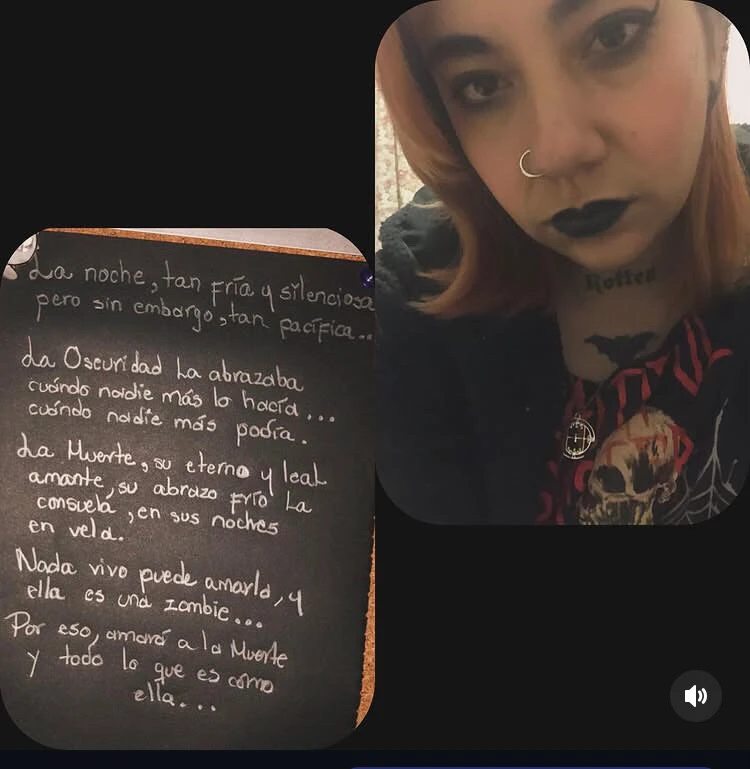 La noche, tan fría y silenciosa
pero sin embargo, tan pacífica...
La Oscuridad La abrazaba
cuándo nadie más lo hacía...
cuándo nadie más podía.
La Muerte, su eterno y leal
amante, su abrazo frío La
consuela, en sus noches
en vela.
Nada vivo puede amarla, y
ella es una zombie...
Por eso, amará a la Muerte
y todo lo que es cómo
ella...
Rotten